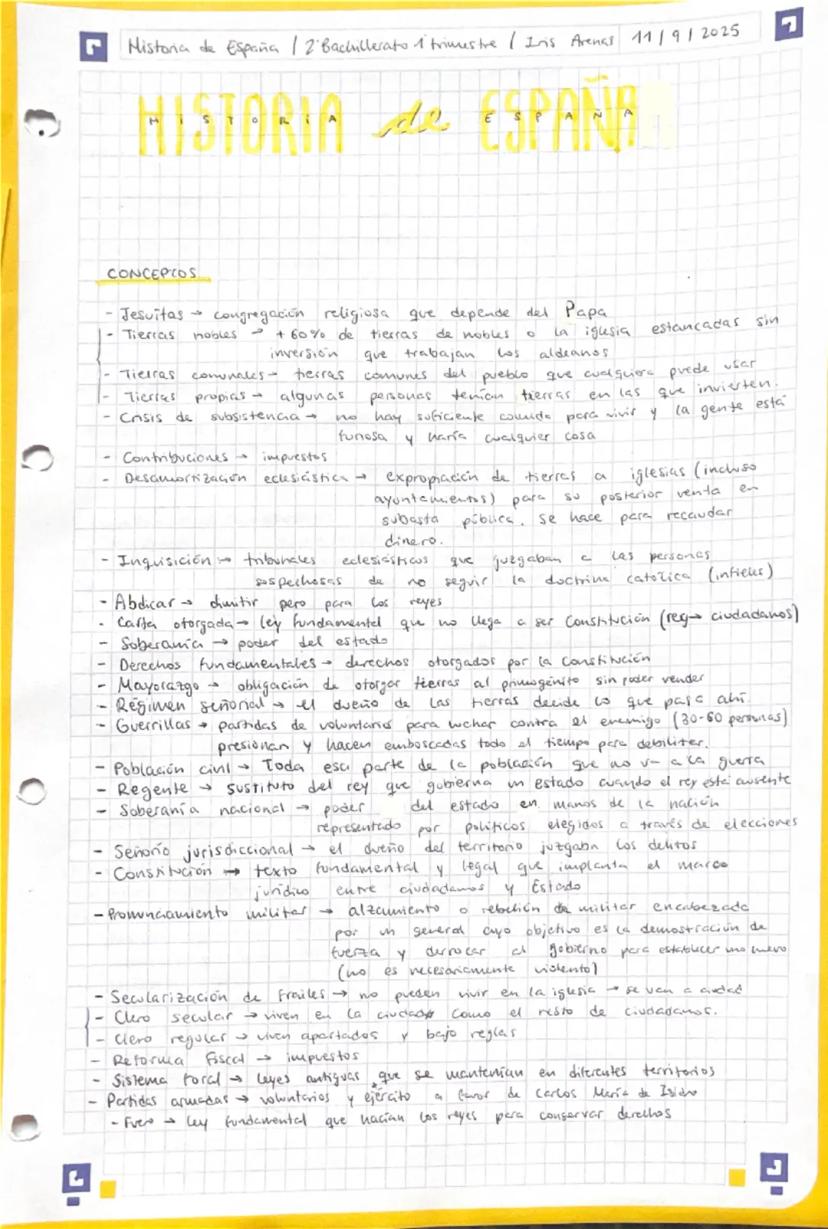 Historia de España / 2ºBachillerato 1ºtrimestre / Iris Arenas 11/9/2025
HISTORIA de ESPAÑA
CONCEPTOS
- Jesuitas → congregación religiosa que depende del Papa
- Tierras nobles → +60% de tierras de nobles o la iglesia estancadas sin
inversión que trabajan los aldeanos
- Tierras comunales → tierras comunes del pueblo que cualquiera puede usar
- Tierras propias → algunas personas tenían tierras en las que invierten.
- Crisis de subsistencia → no hay suficiente comida para vivir y la gente está
furiosa y haría cualquier cosa
- Contribuciones → impuestos
- Desamortización eclesiástica → expropiación de tierras a iglesias (incluso
ayuntamientos) para su posterior venta en
subasta pública. Se hace para recaudar
dinero.
- Inquisición → tribunales eclesiásticos que juzgaban a las personas
sospechosas de no seguir la doctrina católica (infieles)
- Abdicar → dimitir pero para los reyes
- Carta otorgada → ley fundamental que no llega a ser Constitución (rey → ciudadanos)
- Soberanía → poder del estado
- Derechos fundamentales → derechos otorgados por la Constitución
- Mayorazgo → obligación de otorgar tierras al primogénito sin poder vender
- Régimen señorial → el dueño de las tierras decide lo que pasa ahí
- Guerrillas → partidas de voluntarios para luchar contra el enemigo (30-60 personas)
presionan y hacen emboscadas todo el tiempo para debilitar.
- Población civil → Toda esa parte de la población que no va a la guerra
- Regente → sustituto del rey que gobierna un estado cuando el rey está ausente
- Soberanía nacional → poder del estado en manos de la nación
representado por políticos elegidos a través de elecciones
- Señorío jurisdiccional → el dueño del territorio juzgaba los delitos
- Constitución → texto fundamental y legal que implanta el marco
jurídico entre ciudadanos y Estado
- Pronunciamiento militar → alzamiento o rebelión de militar encabezada
por un general cuyo objetivo es la demostración de
fuerza y derrocar el gobierno para establecer uno nuevo
(no es necesariamente violento)
- Secularización de frailes → no pueden vivir en la iglesia → se van a ciudad
- Clero secular → viven en la ciudad como el resto de ciudadanos.
- Clero regular → viven apartados y bajo reglas
- Reforma fiscal → impuestos
- Sistema foral → leyes antiguas que se mantenían en diferentes territorios
- Partidas armadas → voluntarios y ejército a favor de Carlos María de Isidro
- Fuero → ley fundamental que hacían los reyes para conservar derechos